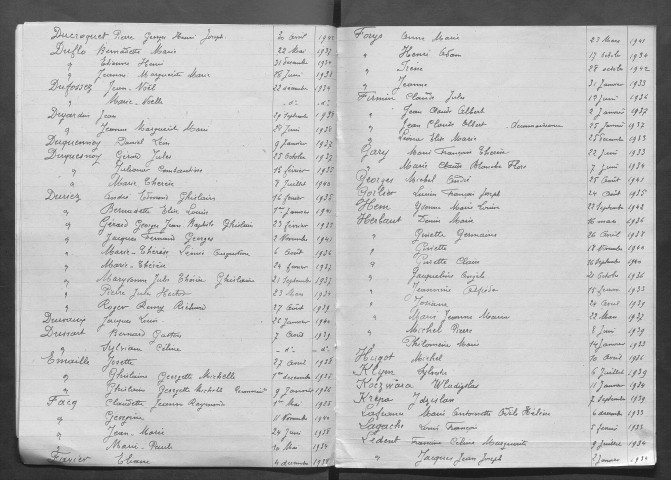 Ducroquet Pierre Georges Henri Joseph 20 avril
Duflo Bernadette Marie 22 Mai 1937
" Etienne Henri 31 décembre 1934
" Jeanne Marguerite Marie 28 Juin
Dufossez Jean Noël 22 décembre 1934
" Marie Noëlle -d°- -d°-
Dujardin Jean 29 septembre
" Jeanne Marguerite Marie 29 Juin 1934
Duquennoy Daniel Léon 9 Janvier 1937
Duquesnoy Gérard Jules 25 octobre 1937
" Constantine 15 février 1935
" Marie Thérèse 8 Juillet 1940
Duriez André Ghislain 16 février 1935
" Bernadette Elise Louise 1er Janvier 1940
" Gérard Georges Jean Baptiste Ghislain 23 février 1935
" Jacques Fernand Georges 2 Novembre
" Marie-Thérèse Léonie Augustine 6 Août 1936
" Marie-Thérèse 24 février 1937
" Maryvonne Julie Thérèse Ghislaine 21 septembre 1937
" Pierre Jules Hector 23 Mars 1934
" Roger Rémy Richard 27 août 1939
Jacques Louis 25 Janvier 1940
Dussart Bernard Gaston 7 Août 1939
" Sylviane Céline -d°- -d°-
Emaille Josette 27 avril 1938
" Ghislaine Georgette Michelle 1er décembre
" Ghislaine Georgette Michelle 9 Janvier 1936
Facq Claudette Jeanne Raymonde 1er Mai 1935
" Georgine 11 Novembre 1940
" Jean-Marie 24 Juin 1938
" Marie-Paule 10 Mai 1934
Favier Eliane 4 décembre 1938
Forys Anne Marie 23 Mars 1941
" Henri Adam 17 octobre 1934
" Irène 28 octobre 1942
" Jeanne 31 Janvier 1933
Firmin Claude Jules 17 Juin 1936
" Jean Claude Albert 2 Janvier 1937
" Jean Claude Albert 25 Janvier 1937
" Léona Elise Marie 25 décembre 1933
Gary Marie Françoise Thérèse 22 Juin 1933
" Marie Claude Blanche Flore 7 Juin 1934
Georges Michel André 25 Août 1941
Lucien François Joseph 24 Août 1935
Hem Yvonne Marie Louise 22 septembre 1942
Herbaut Denise Marie 16 mars 1936
" Ginette Germaine 26 avril 1938
" Ginette 18 décembre 1940
" Ginette Claire 26 septembre 1940
" Jacqueline Angèle 20 octobre 1936
" Jeannine 15 février 1933
" Josiane 24 avril 1939
" Marie Jeanne Maria 22 Mai 1937
" Michel Pierre 8 Juin 1939
" Philomène Marie 14 Janvier 1933
Hugot Michel 10 avril 1935
Klym Sylvestre 6 Juillet 1939
Kotzwara Wladislas 11 Janvier 1934
Krepa Zdzislaw 7 septembre 1939
Marie Antoinette Odile Hélène 6 décembre 1933
Lagache Louis François 5 février 1933
Lédent Francine Céline Marguerite 9 Juillet 1934
" Jacques Jean Joseph 2 Janvier 1934